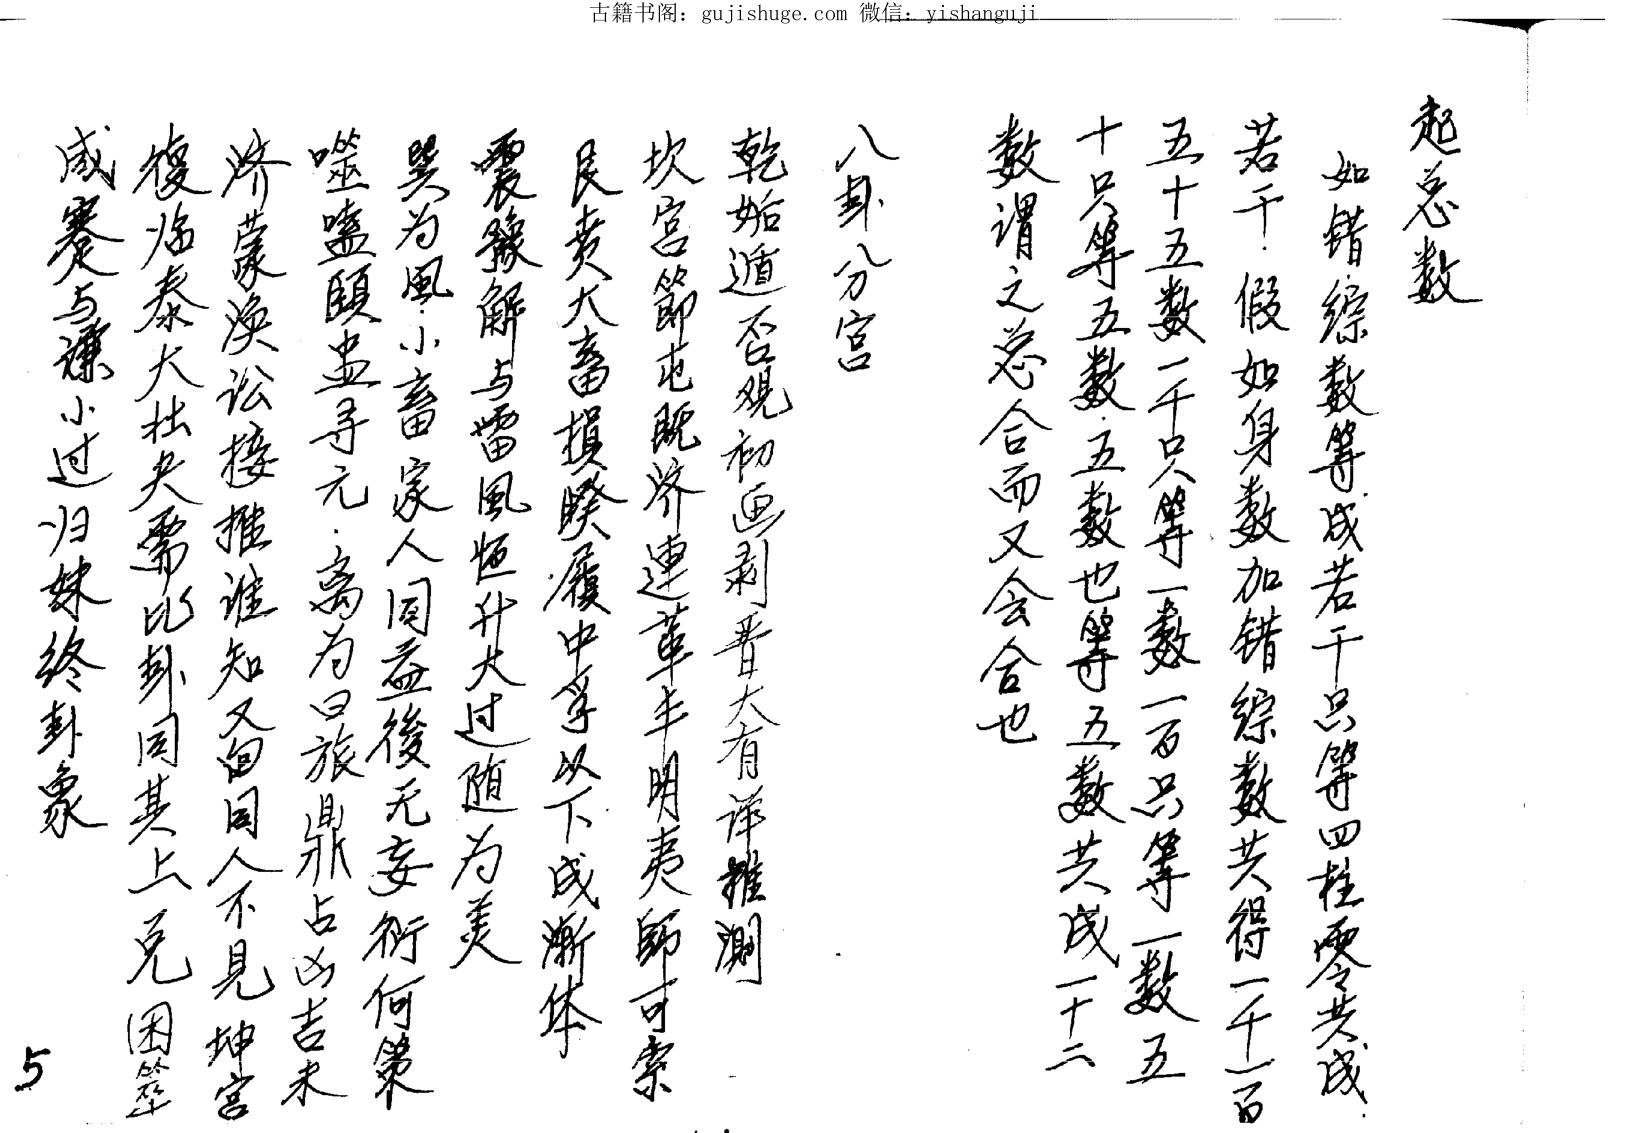 古籍书阁：gujishuge.com 微信：yishanguji
起总数
如错综数筭成若干只筭四柱零共成
若干假如身数加错综数共得一千一百
五十五数一千只筭一数一百只筭一数五
十只筭五数五数也筭五数共成一十二
数谓之总合而又会合也
八卦分宫
乾姤遁否观初画剥晋大有详推测
坎宫節屯既济連革丰明夷師可索
艮贲大畜損睽履中孚以下成渐体
震豫解与雷風恒升大过随为美
巽为風小畜家人同益後无妄衍何策
噬嗑頤蛊寻元离为曰旅鼎占凶吉未
济蒙涣讼接推谁知又向同人不見坤宮
復临泰大壮夬需比卦同其上兑困
咸蹇与谦小过归妹终卦象
5